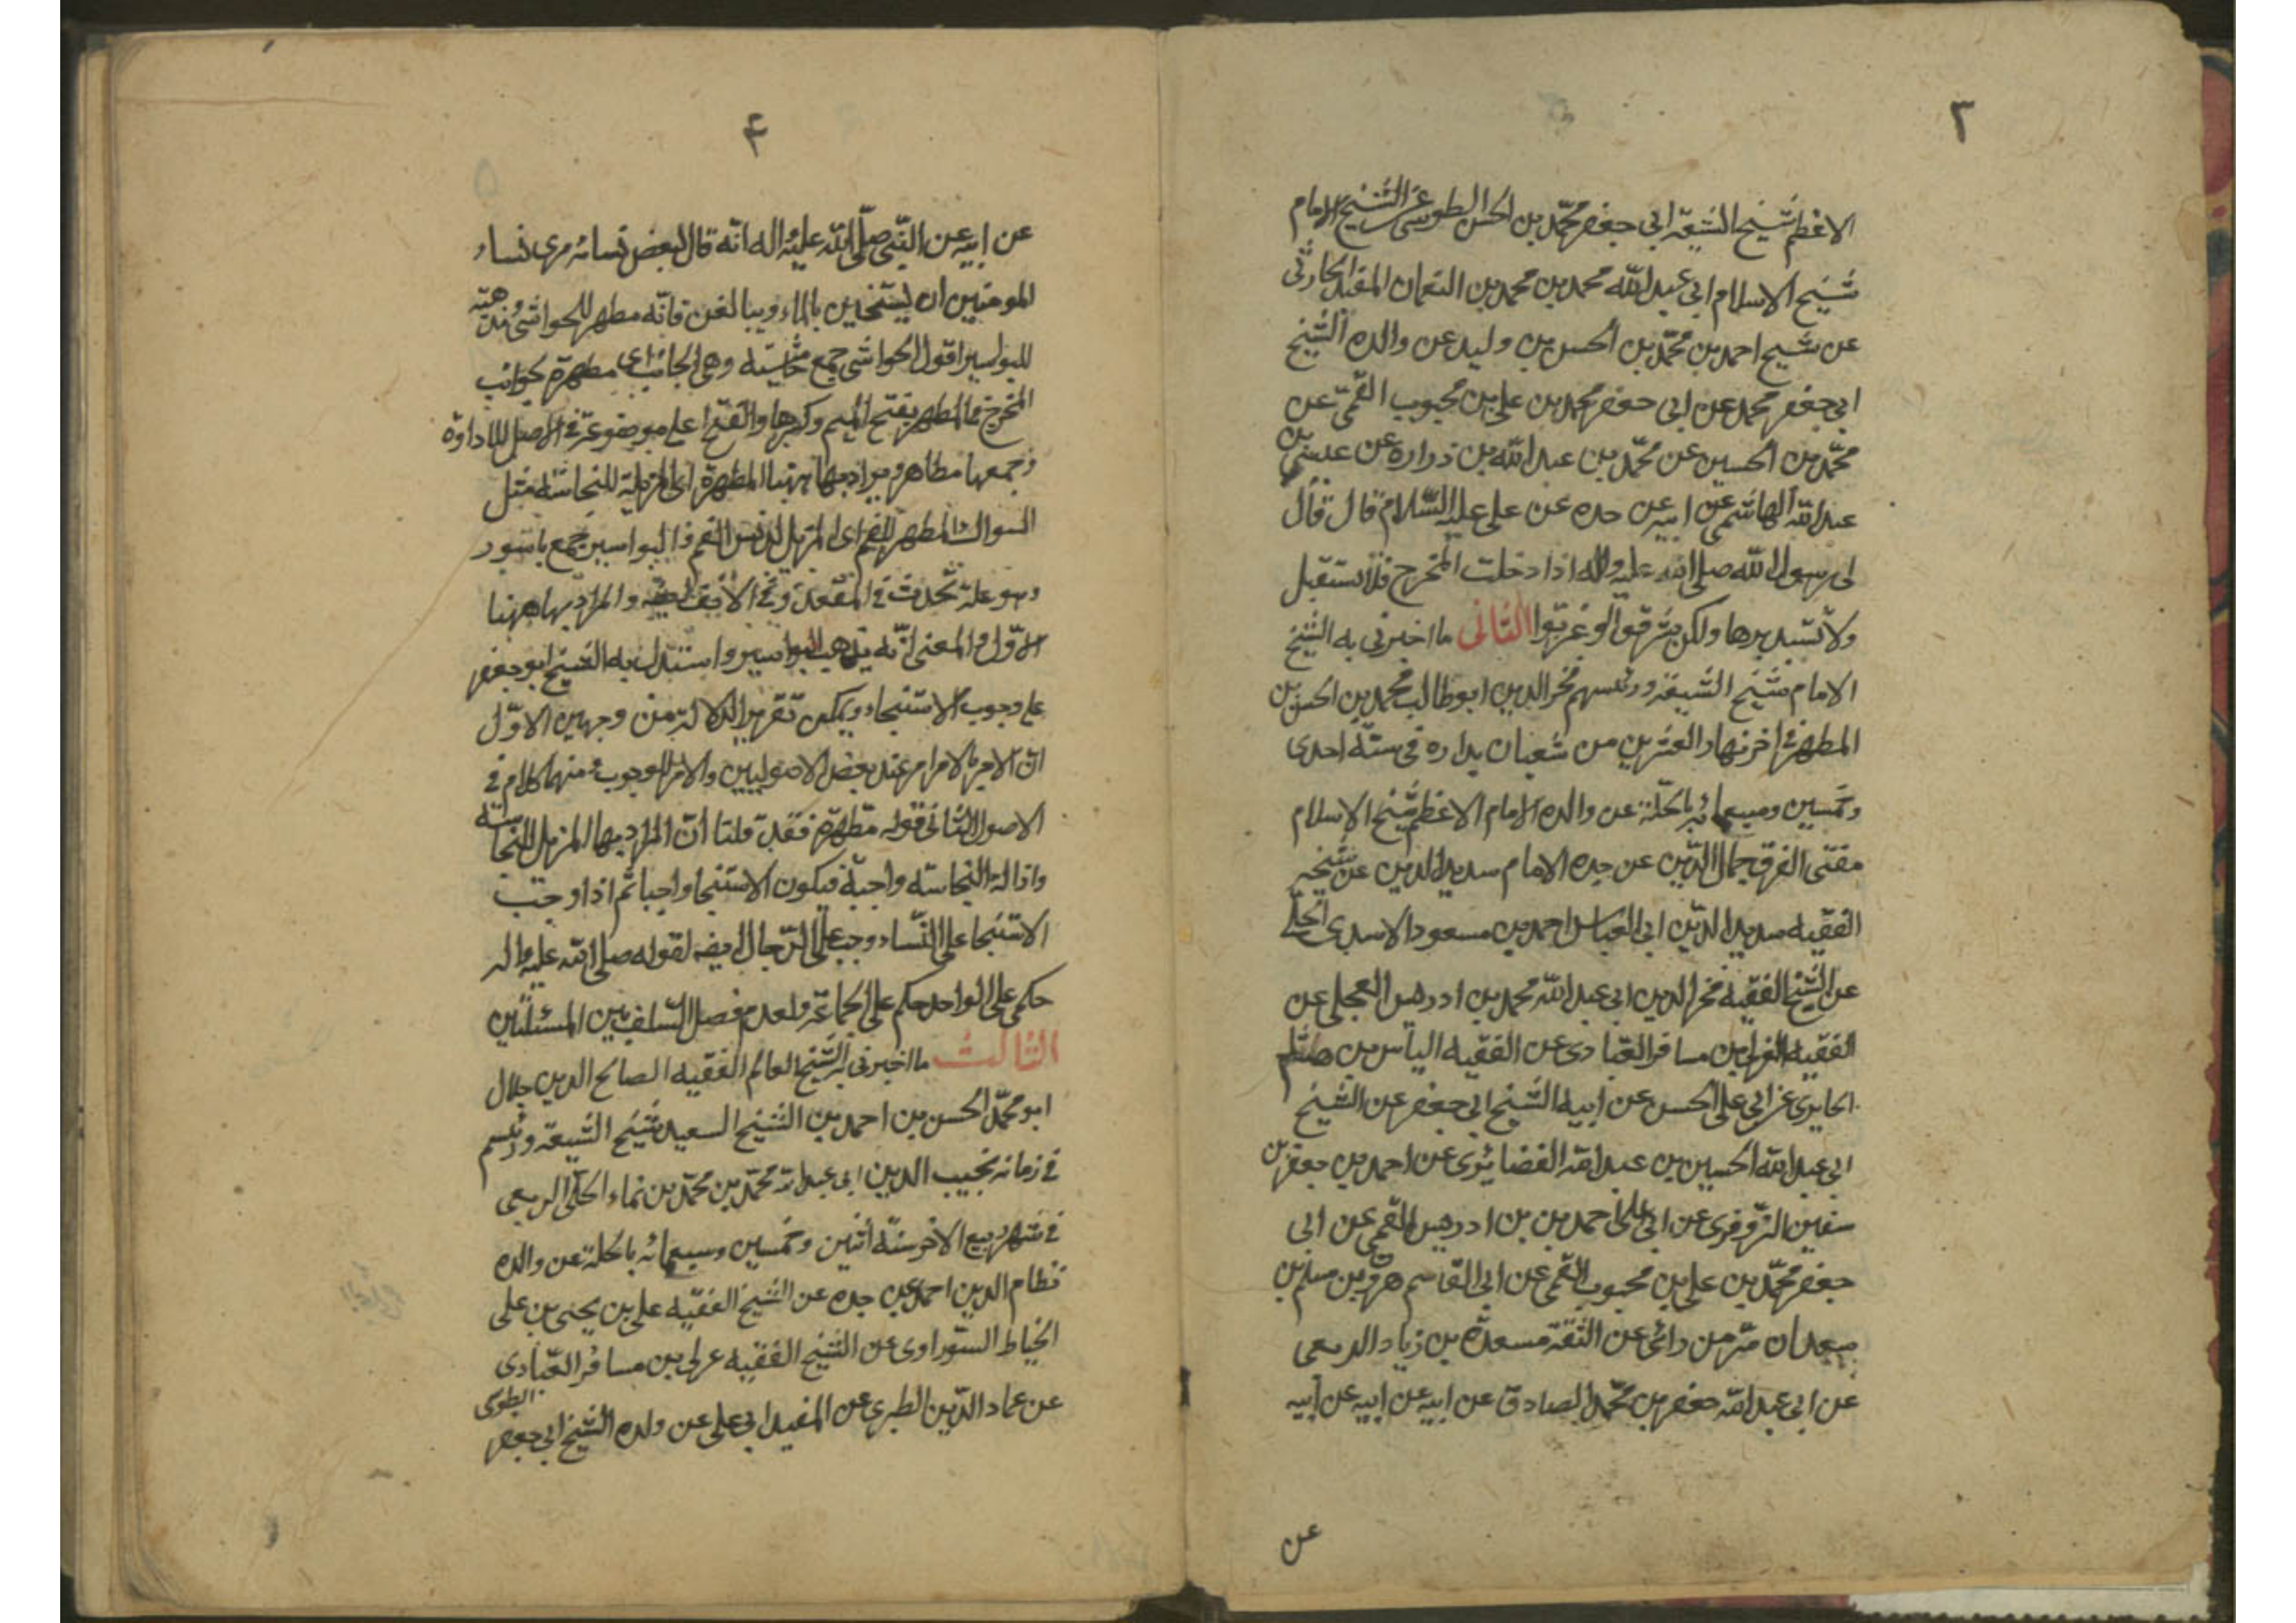 ٣
الاعظم شيخ الشيعة ابى جعفر محمّد بن الحسن الطوسى عن الشيخ الامام
شيخ الاسلام ابى عبد الله محمد بن محمد بن النعمان المفيد الحارثى
عن شيخ احمد بن محمّد بن الحسن بن وليد عن والده الشيخ
ابى جعفر محمد عن ابى جعفر محمد بن على بن محبوب القمى عن
محمّد بن الحسين عن محمّد بن عبد الله بن زراره عن عيسى بن
عبد الله الهاشمى عن ابيه عن جده عن على عليه السّلام قال قال
لى رسول الله صلى الله عليه واله اذا دخلت المخرج فلا تستقبل
ولا تستدبرها ولكن شرقوا او غربوا الثانى ما اخبرنى به الشيخ
الامام شيخ الشيعة ورئيسهم فخر الدين ابو طالب محمد بن الحسن بن
المطهر فى اخر نهار العشرين من شعبان بداره فى سنة احدى
وخمسين وسبعمائه بالحلّة عن والده الامام الاعظم شيخ الاسلام
مفتى الفرق جمال الدّين عن جده الامام سديد الدين عن شيخه
الفقيه سديد الدّين ابى العباس احمد بن مسعود الاسدى الحلّى
عن الشيخ الفقيه فخر الدين ابى عبد الله محمد بن ادريس العجلى عن
الفقيه عربى بن مسافر العبادى عن الفقيه الياس بن هشام
الحايرى عن ابى على الحسن عن ابيه الشيخ ابى جعفر عن الشيخ
ابى عبد الله الحسين بن عبد الله الغضايرى عن احمد بن جعفر بن
سفين البزوفرى عن ابى على احمد بن بن ادريس القمى عن ابى
جعفر محمّد بن على بن محبوب القمى عن ابى القاسم هرون بن مسلم بن
سعدان سرّ من رائى عن الثقة مسعدة بن زياد الربعى
عن ابى عبد الله جعفر بن محمّد الصادق عن ابيه عن ابيه عن ابيه
عن
۴
عن ابيه عن النبى صلّى الله عليه واله انّه قال لبعض نسائه مرى نساء
المومنين ان يستنجين بالماء ويبالغن فانّه مطهر للحواشى ومذهبة
للبواسير اقول الحواشى جمع حاشية وهى الجانب اى مطهرة لجوانب
المخرج والمطهر بفتح الميم وكسرها والفتح اعلى موضوعة فى الاصل للاداوة
وجمعها مطاهر ويراد بها ههنا المطهرة اى المزيلة للنجاسة مثل
السواك مطهر للفم اى المزيل لدنس الفم والبواسير جمع باسور
وهو علة تحدث فى المقعدة وفى الانف ايضه والمراد بها ههنا
الاوّل والمعنى انّه يذهب البواسير واستدل به الشيخ ابو جعفر
على وجوب الاستنجاء ويمكن تقرير الدلالة من وجهين الاوّل
انّ الامر بالامر امر عند بعض الاصوليين والامر للوجوب ومنهما كلام فى
الاصول الثانى قوله مطهرة فقد قلنا انّ المراد بها المزيل للنجاسة
وازالة النجاسة واجبة فيكون الاستنجا واجبا ثم اذا وجب
الاستنجا على النّساء وجب على الرّجال ايضه لقوله صلى الله عليه واله
حكمى على الواحد حكم على الجماعة ولعدم فصل السلف بين المسئلتين
الثالث ما اخبرنى به الشيخ العالم الفقيه الصالح الدين جلال
ابو محمّد الحسن بن احمد بن الشيخ السعيد شيخ الشيعة ورئيسم
فى زمانه نجيب الدين ابى عبد الله محمّد بن محمّد بن نماء الحلّى الربعى
فى شهر ربيع الاخر سنة اثنين وخمسين وسبعمائه بالحلة عن والده
نظام الدين احمد عن جده عن الشيخ الفقيه على بن يحيى بن على
الخياط السوراوى عن الشيخ الفقيه عربى بن مسافر العبادى
عن عماد الدّين الطبرى عن المفيد ابى على عن والده الشيخ ابى جعفر الطوسى